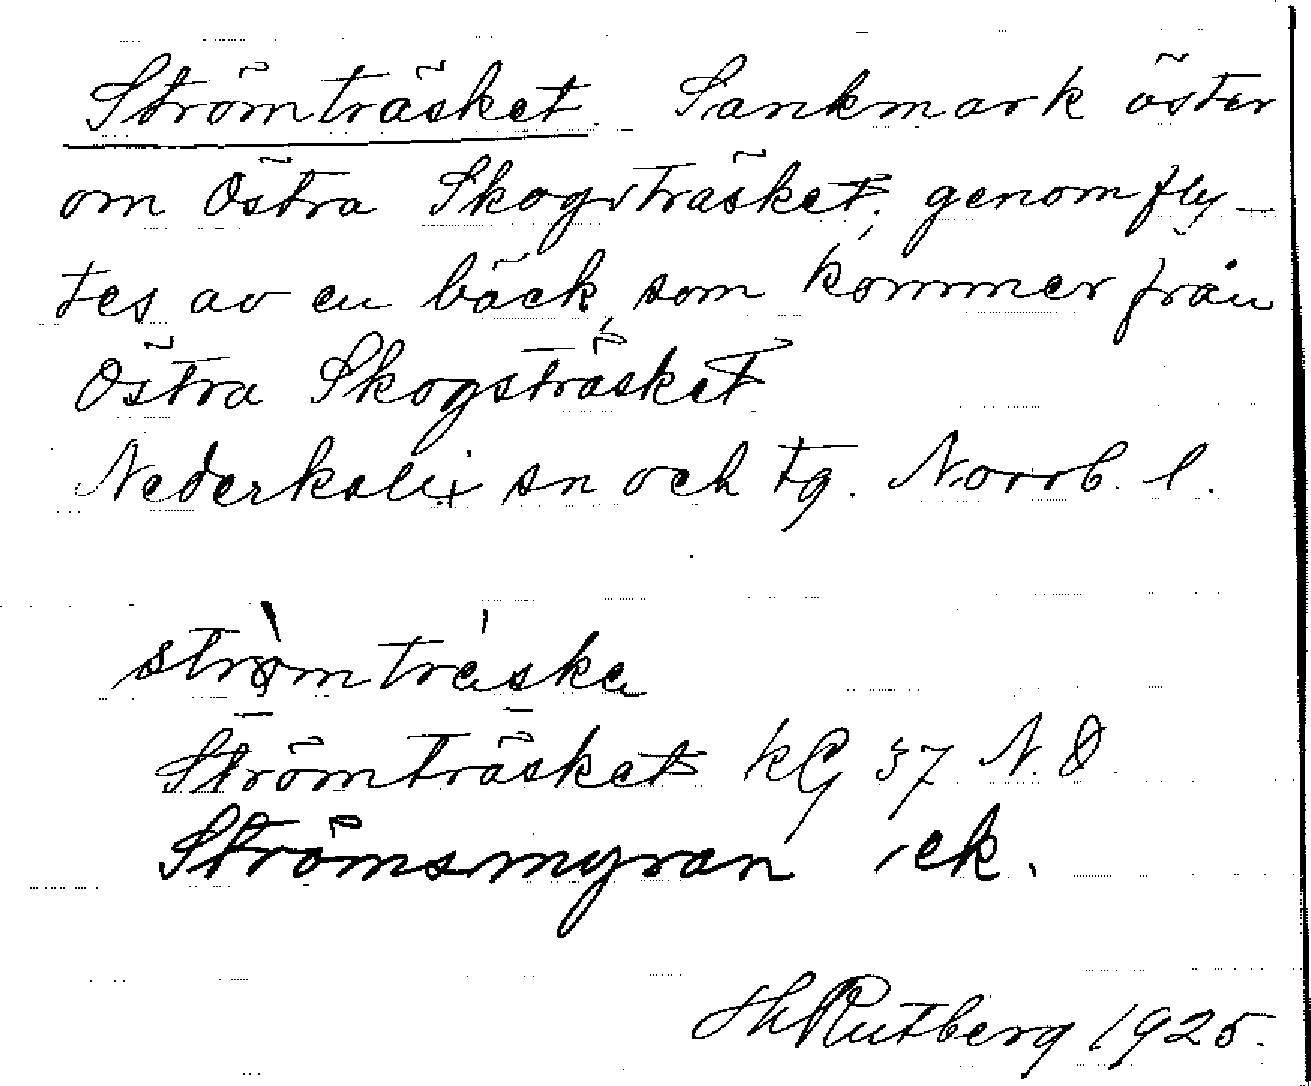 Strömträsket. Sankmark öster
om Östra Skogsträsket, genomfly-
tes av en bäck, som kommer från
Östra Skogsträsket
Nederkalix sn och tg. Norrb. l.
stròmtrá̈ska
Strömträsket kG 37 N.O
Strömsmyran ek.
Hh Rutberg 1925.